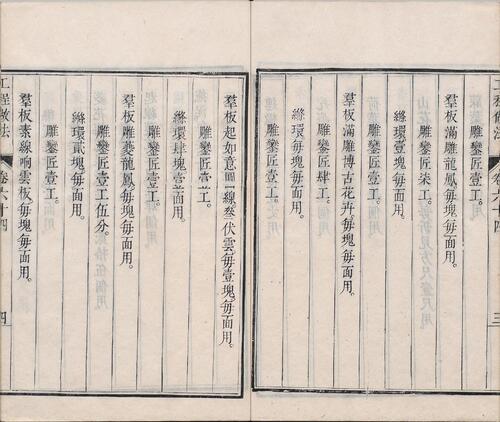 工程做法
卷六十四
三
羣板滿雕龍鳳每塊每面用。
雕鑾匠柒工。
縧環壹塊每面用。
雕鑾匠壹工。
羣板滿雕博古花卉每塊每面用。
雕鑾匠肆工。
縧環每塊每面用。
雕鑾匠壹工。
羣板起如意線叅伏雲每壹塊每面用。
雕鑾匠壹工。
縧環肆塊壹面用。
雕鑾匠壹工。
羣板雕夔龍鳳每塊每面用。
雕鑾匠壹工伍分。
縧環貳塊每面用。
雕鑾匠壹工。
羣板素線响雲板每塊每面用。
工程做法
卷六十四
四